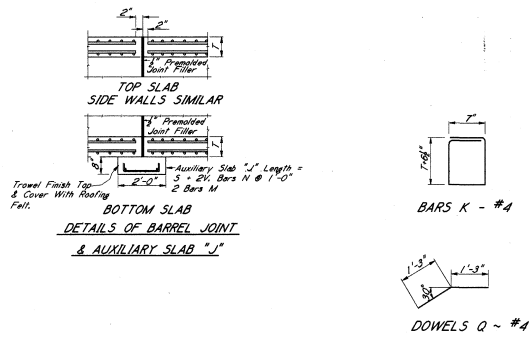 2"
2"
T
1/2" Premolded
Joint Filler
TOP SLAB
SIDE WALLS SIMILAR
1/2" Premolded
Joint Filler
T
8"
2'-0"
Auxiliary Slab "J" Length =
S + 2V. Bars N @ 1'-0"
2 Bars M
Trowel Finish Top
& Cover With Roofing
Felt.
BOTTOM SLAB
DETAILS OF BARREL JOINT
& AUXILIARY SLAB "J"
7"
BARS K - #4
1'-3"
1'-3"
DOWELS Q ~ #4